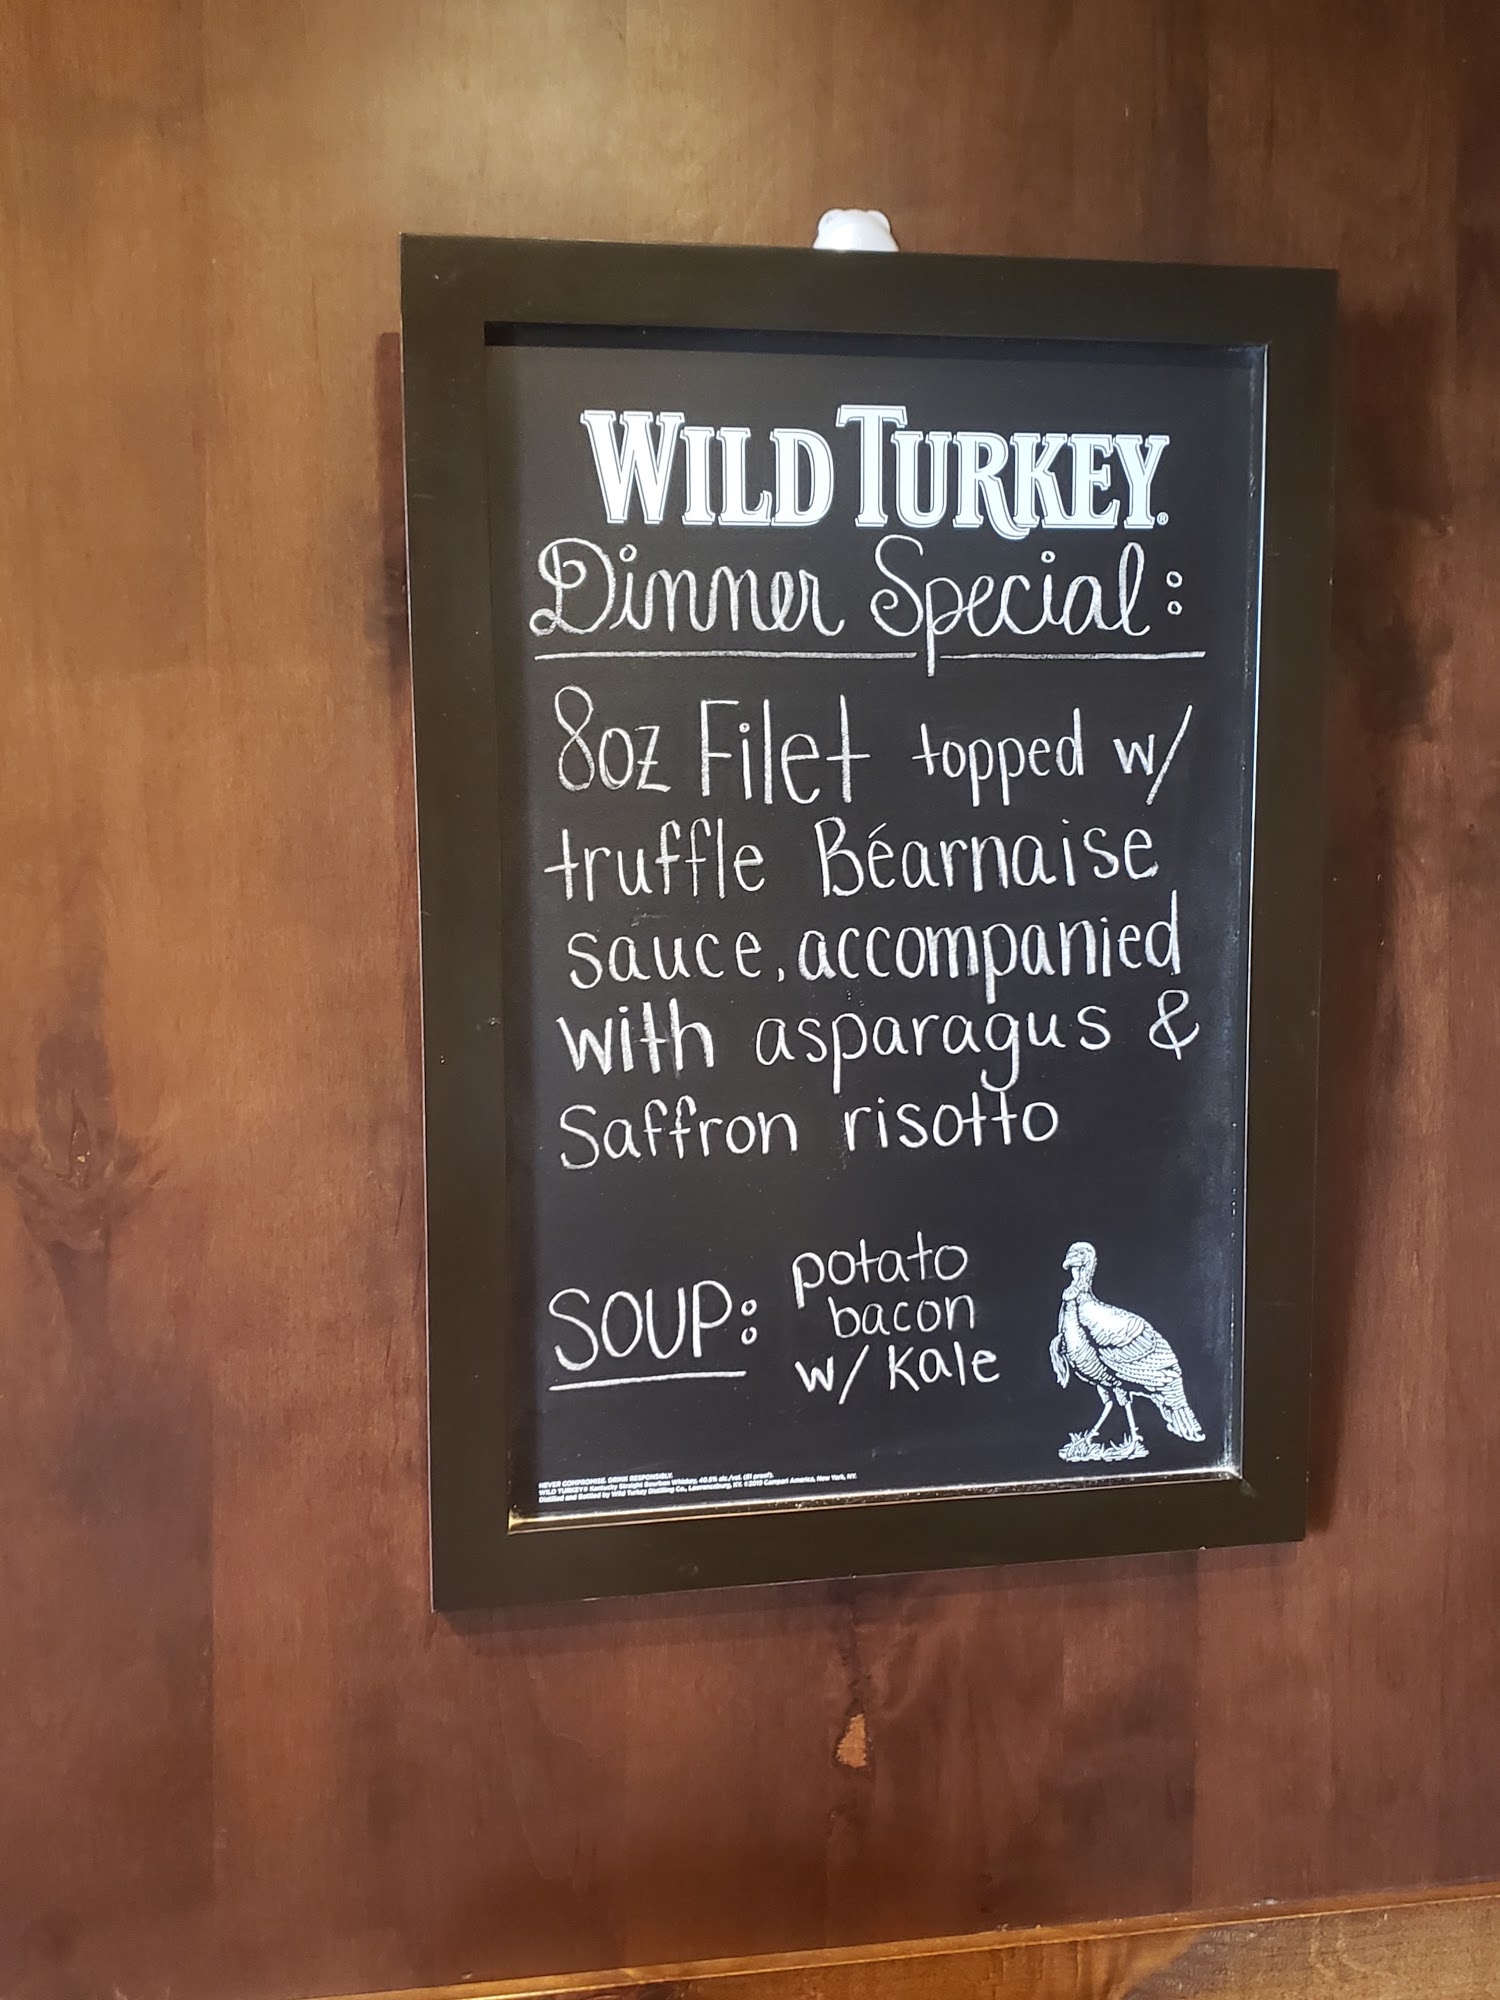 WILD TURKEY®
Dinner Special:
8oz Filet topped w/
truffle Béarnaise
sauce, accompanied
with asparagus &
Saffron risotto
SOUP: potato
bacon
w/ kale
NEVER COMPROMISE. DRINK RESPONSIBLY.
WILD TURKEY® Kentucky Straight Bourbon Whiskey, 40.5% alc./vol. (81 proof).
Distilled and Bottled by Wild Turkey Distilling Co., Lawrenceburg, KY. ©2018 Campari America, New York, NY.